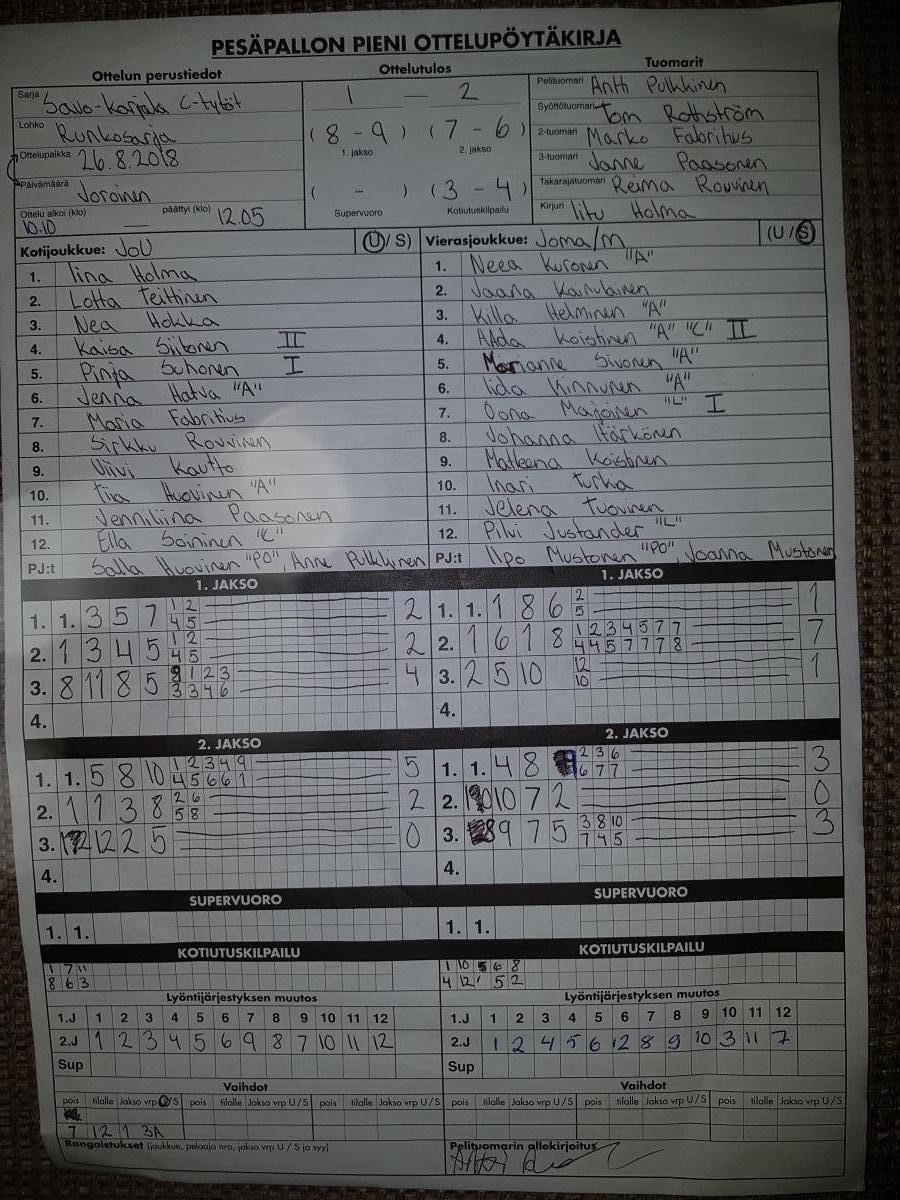 PESÄPALLON PIENI OTTELUPÖYTÄKIRJA
Ottelun perustiedot
Sarja Savo-Karjala C-tytöt
Lohko Runkosarja
Ottelupaikka 26.8.2018
Päivämäärä Joroinen
Ottelu alkoi (klo) 10.10 — päättyi (klo) 12.05
Ottelutulos
1 — 2
( 8 - 9 ) ( 7 - 6 )
1. jakso 2. jakso
( - ) ( 3 - 4 )
Supervuoro Kotiutuskilpailu
Tuomarit
Pelituomari Antti Pulkkinen
Syöttötuomari Tom Rothström
2-tuomari Marko Fabritius
3-tuomari Janne Paasonen
Takarajatuomari Reima Rouvinen
Kirjuri Iitu Holma
Kotijoukkue: JoU (U/ S)
1. Iina Holma
2. Lotta Teittinen
3. Nea Hokka
4. Kaisa Siitonen II
5. Pinja Suhonen I
6. Jenna Hatva "A"
7. Maria Fabritius
8. Sirkku Rouvinen
9. Viivi Kautto
10. Tiia Huovinen "A"
11. Jenniliina Paasonen
12. Ella Soininen "C"
PJ:t Salla Huovinen "PO", Anne Pulkkinen
Vierasjoukkue: Joma/m (U /S)
1. Neea Kuronen "A"
2. Jaana Kainulainen
3. Killa Helminen "A"
4. AAda Koistinen "A" "C" II
5. Marianne Sivonen "A"
6. Iida Kinnunen "A"
7. Oona Majoinen "L" I
8. Johanna Härkönen
9. Matleena Koistinen
10. Inari Turka
11. Jelena Tuovinen
12. Pilvi Justander "L"
PJ:t Ilpo Mustonen "PO", Joanna Mustonen
1. JAKSO
1. 1. 3 5 7 1 2 2
4 5
2. 1 3 4 5 1 2 2
4 5
3. 8 11 8 5 9 1 2 3 4
3 3 4 6
4.
1. JAKSO
1. 1. 1 8 6 2 1
5
2. 1 6 1 8 1 2 3 4 5 7 7 7
4 4 5 7 7 7 8
3. 2 5 10 12 1
10
4.
2. JAKSO
1. 1. 5 8 10 1 2 3 4 9 5
4 5 6 6 1
2. 1 1 3 8 2 6 2
5 8
3. 12 2 5 0
4.
2. JAKSO
1. 1. 4 8 2 3 6 3
6 7 7
2. 10 7 2 0
3. 9 7 5 3 8 10 3
7 4 5
4.
SUPERVUORO
1. 1.
SUPERVUORO
1. 1.
KOTIUTUSKILPAILU
1 7 11
8 6 3
KOTIUTUSKILPAILU
1 10 5 6 8
4 12 5 2
Lyöntijärjestyksen muutos
1.J 1 2 3 4 5 6 7 8 9 10 11 12
2.J 1 2 3 4 5 6 9 8 7 10 11 12
Sup
Lyöntijärjestyksen muutos
1.J 1 2 3 4 5 6 7 8 9 10 11 12
2.J 1 2 4 5 6 12 8 9 10 3 11 7
Sup
Vaihdot
pois tilalle Jakso vrp U/S pois tilalle Jakso vrp U / S pois tilalle Jakso vrp U / S
7 12 1 3A
Vaihdot
pois tilalle Jakso vrp U / S pois tilalle Jakso vrp U / S pois tilalle Jakso vrp U / S
Rangaistukset (joukkue, pelaaja nro, jakso vrp U / S ja syy)
Pelituomarin allekirjoitus